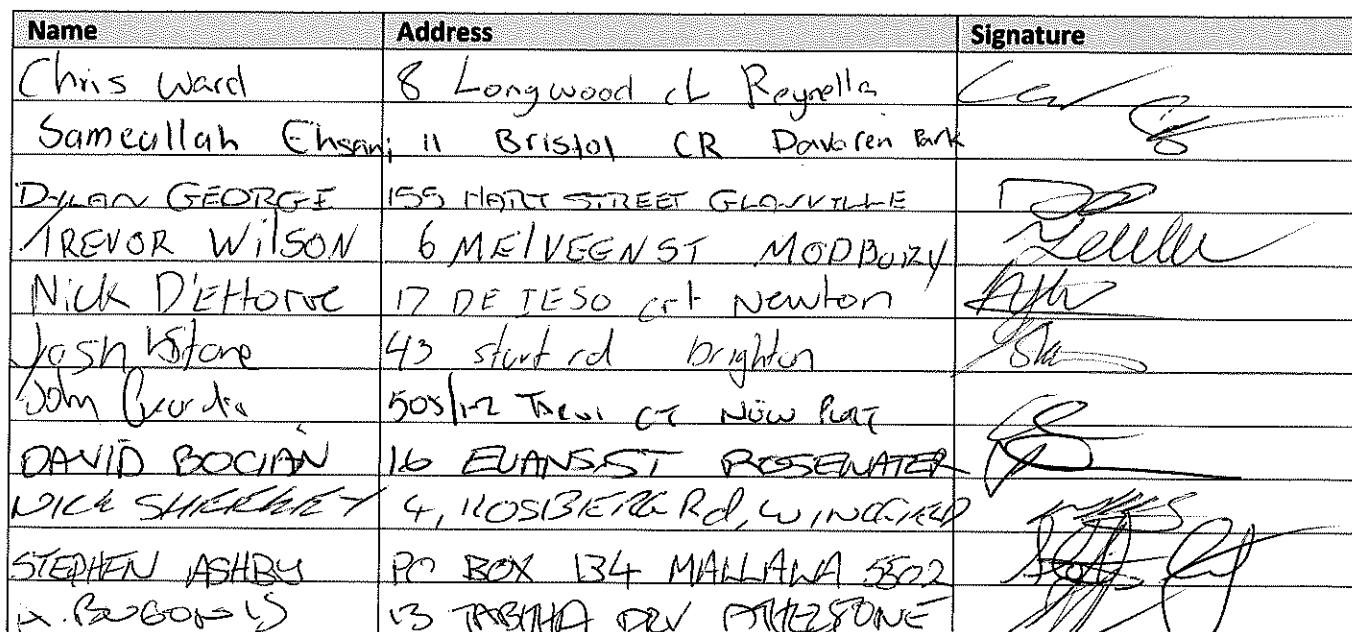 Name Address Signature
Chris Ward 8 Longwood ct Reynella
Sameullah Ehsani 11 Bristol CR Davoren Park
DYLAN GEORGE 155 HART STREET GLANVILLE
TREVOR WilSON 6 MElVEEN ST MODBURY
Nick D'Ettorre 17 DE IESO crt Newton
Josh Stone 43 sturt rd brighton
John CT New Port
DAVID BOCIAN 16 EVANS ST ROSEWATER
NICK 4, ROSBERG Rd, WINGFIELD
STEPHEN ASHBY PO BOX 134 MALLALA 5502
13 TABITHA DRV ATHELSTONE